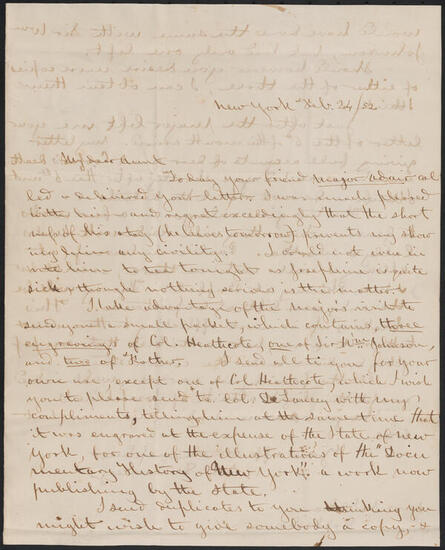 New York Feb. 24/52
My dear Aunt
Today your friend Major Adair cal
led & delivered your letter. I was much pleased
with him and regret exceedingly that the short
ness of his stay (he leaves tomorrow) prevents my show
ing him any civility. I could not even in
vite him to tea tonight as Josephine is quite
sick though nothing serious is the matter.
I take advantage of the Majors visit to
send you a small packet, which contains, three
engravings of Col. Heathcote, one of Sir Wm Johnson,
and two of Father. I send all to you for your
own use except one of Col Heathcote, which I wish
you to please send to Col. De Lancey with my
compliments, telling him at the same time that
it was engraved at the expense of the State of New
York, for one of the illustrations of the "Docu
mentary History of New York" a work now
publishing by the State.
I send duplicates to you thinking you
might wish to give somebody a copy, &